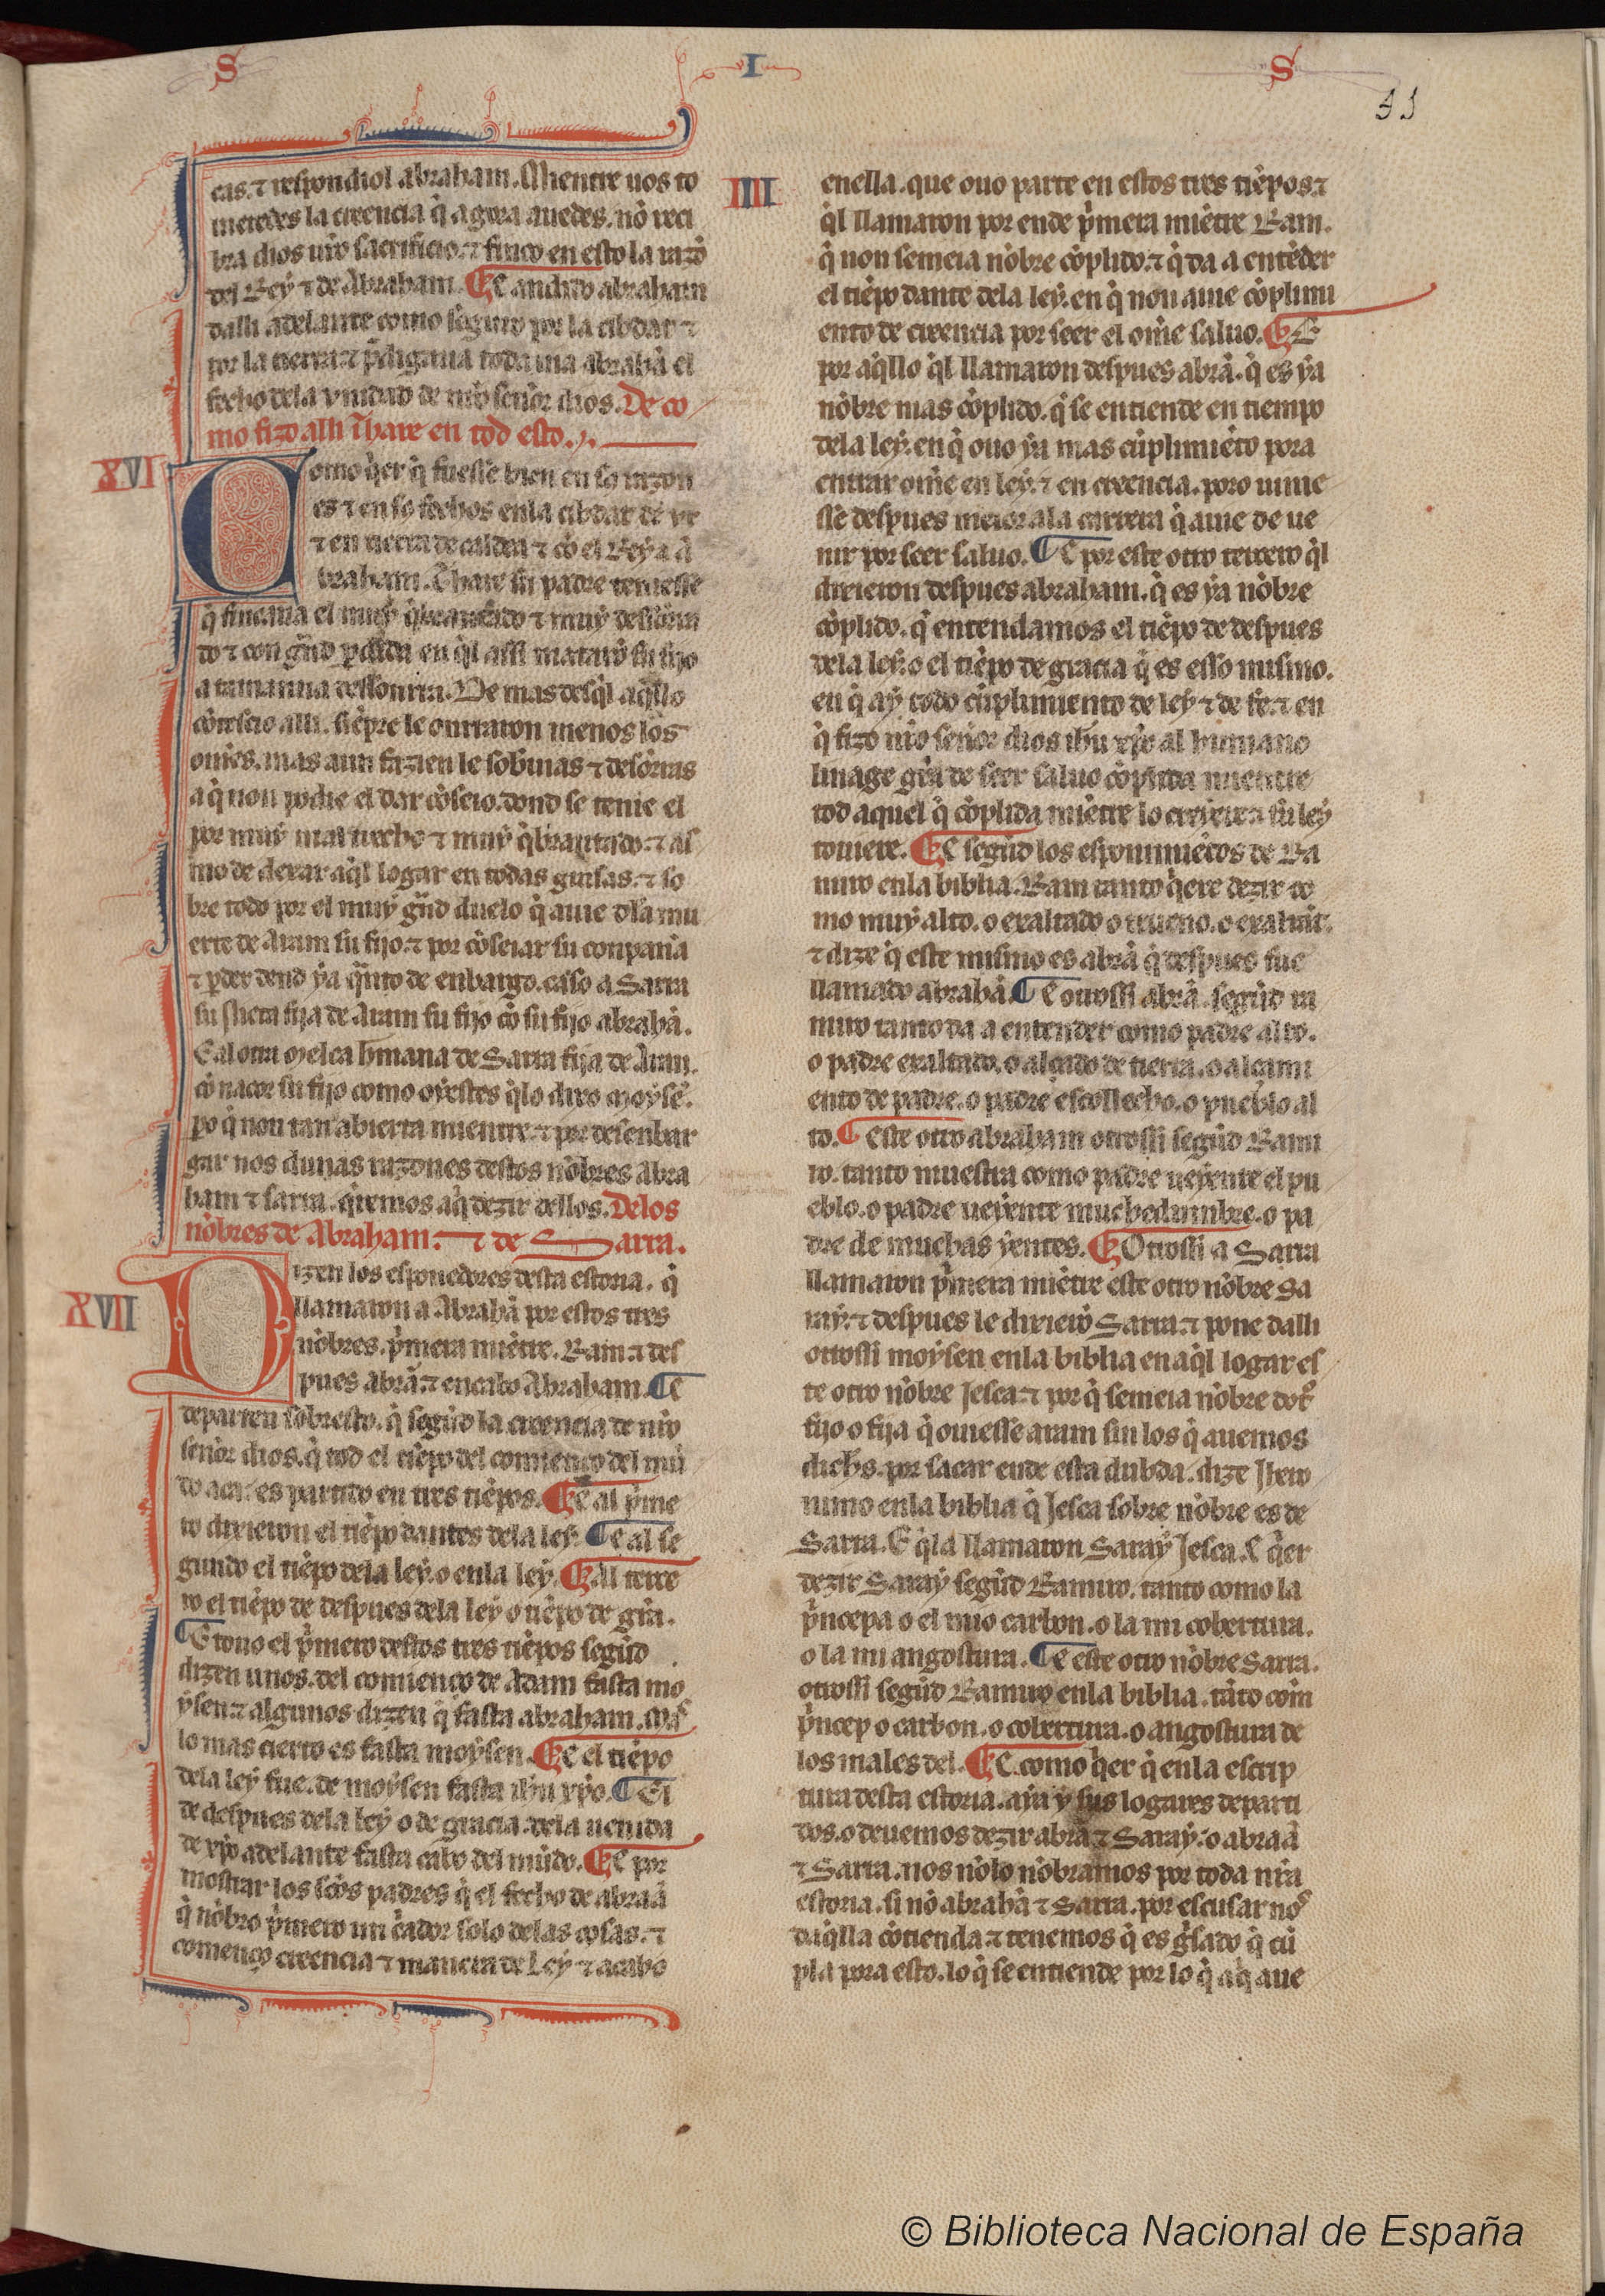 S I S
51
cas. ⁊ respondiol abraham. Mientre uos to
meredes la creencia q̃ agora auedes. nõ reci
bra dios ur̃o sacrificio. ⁊ finco en esto la razõ
del Rey ⁊ de Abraham. ¶ E andudo abraham
dalli adelante como seguro por la cibdat ⁊
por la tierra ⁊ p̃digaua toda uia abrahã el
fecho dela unidad de nr̃o sennor dios. De co
mo fizo alli Thare en tod esto.
XVI
Como q̃er q̃ fuesse bien en so razon
es ⁊ en so fechos enla cibdat de ur
⁊ en tierra de caldea ⁊ cõ el Rey a a
braham. Thare su padre touiesse
q̃ fincaua el muy q̃brantado ⁊ muy desonrra
do ⁊ con grãd perdida en q̃l assi matarõ su fijo
a tamanna desonrra. De mas desq̃l aq̃llo
cõtescio alli. siẽpre le onrraron menos los
omes. mas aun fazien le soberuias ⁊ desonras
a q̃ non podie el dar cõseio. dond se tenie el
por muy mal trecho ⁊ muy q̃brantado. ⁊ as
mo de dexar aq̃l logar en todas guisas. ⁊ so
bre todo por el muy grãd duelo q̃ auie dela mu
erte de Aram su fijo. ⁊ por cõseiar su conpanna
⁊ perder dend ya quãto de enbargo. caso a Sarra
su nieta fija de Aram su fijo cõ su fijo abrahã.
E al otra Melca hermana de Sarra fija de Aram.
cõ nacor su fijo como oyestes q̃lo dixo moysẽ.
po q̃ non tan abierta mientre. ⁊ por desenbar
gar nos dunas razones destos nõbres Abra
ham ⁊ sarra. q̃remos aq̃ dezir dellos. Delos
nõbres de Abraham. ⁊ de Sarra.
XVII
Dizen los esponedores desta estoria. q̃
llamaron a Abrahã por estos tres
nõbres. p̃mera miẽtre. Ram. ⁊ des
pues abrã. ⁊ encabo Abraham. ¶ E
departen sobresto. q̃ segũd la creencia de nr̃o
sennor dios. q̃ tod el tiẽpo del comienço del mũ
do aca. es partido en tres tiẽpos. ¶ E al p̃me
ro dixieron el tiẽpo dantes dela ley. ¶ E al se
gundo el tiẽpo dela ley. o enla ley. ¶ Al terce
ro el tiẽpo de despues dela ley o tiẽpo de gr̃a.
¶ E touo el p̃mero destos tres tiẽpos segũd
dizen unos. del comienço de Adam fasta mo
ysen. ⁊ algunos dizen q̃ fasta abraham. Mas
lo mas cierto es fasta moysen. ¶ E el tiẽpo
dela ley fue. de moysen fasta ih̃u xp̃o. ¶ El
de despues dela ley o de gracia. dela uenida
de xp̃o adelante fasta cabo del mũdo. ¶ E por
mostrar los sc̃os padres q̃ el fecho de abraã
q̃ nõbro p̃mero un c̃ador solo delas cosas. ⁊
començo creencia ⁊ manera de Ley ⁊ acabo
IIII
enella. que ouo parte en estos tres tiẽpos. ⁊
q̃l llamaron por ende p̃mera miẽtre Ram.
q̃ non semeia nõbre cõplido. ⁊ q̃ da a entẽder
el tiẽpo dante dela ley. en q̃ non auie cõplimi
ento de creencia por seer el om̃e saluo. ¶ E
por aq̃llo q̃l llamaron despues abrã. q̃ es ya
nõbre mas cõplido. q̃ se entiende en tiempo
dela ley. en q̃ ouo ya mas cũplimiẽto pora
entrar om̃e en ley. ⁊ en creencia. poro uinie
sse despues meior ala carrera q̃ auie de ue
nir por seer saluo. ¶ E por este otro tercero q̃l
dixieron despues abraham. q̃ es ya nõbre
cõplido. q̃ entendamos el tiẽpo de despues
dela ley. o el tiẽpo de gracia q̃ es esso mismo.
en q̃ ay todo cũplimiento de ley ⁊ de fe. ⁊ en
q̃ fizo nr̃o sennor dios ih̃u xp̃o al humano
linage gr̃a de seer saluo cõplida mientre
tod aquel q̃ cõplida miẽtre lo creyere ⁊ su ley
touiere. ¶ E segũd los esponimiẽtos de Ra
miro enla biblia. Ram tanto q̃ere dezir co
mo muy alto. o exaltado o trueno. o exaltãt.
⁊ dize q̃ este mismo es abrã q̃ despues fue
llamado abrahã. ¶ E otrossi abrã. segũd ra
miro tanto da a entender como padre alto.
o padre exaltado. o alçado de tierra. o alçami
ento de padre. o padre escollecho. o pueblo al
to. ¶ Este otro abraham otrossi segũd Rami
ro. tanto muestra como padre ueyente el pu
eblo. o padre ueyente muchedumbre. o pa
dre de muchas yentes. ¶ Otrossi a Sarra
llamaron p̃mera miẽtre este otro nõbre Sa
ray. ⁊ despues le dixierõ Sarra. ⁊ pone dalli
otrossi moysen enla biblia en aq̃l logar es
te otro nõbre Jesca. ⁊ por q̃ semeia nõbre dotro
fijo o fija q̃ ouiesse aram sin los q̃ auemos
dichos. por sacar ende esta dubda. dize Jhero
nimo enla biblia q̃ Jesca sobre nõbre es de
Sarra. E q̃la llamaron Saray Jesca. E q̃er
dezir Saray segũd Ramiro. tanto como la
p̃ncepa o el mio carbon. o la mi cobertura.
o la mi angostura. ¶ E este otro nõbre Sarra.
otrossi segũd Ramiro enla biblia. tãto com
p̃ncep o carbon. o cobertura. o angostura de
los males del. ¶ E como q̃er q̃ enla escrip
tura desta estoria. aya y sus logares departi
dos. o deuemos dezir abrã ⁊ Saray. o abraã
⁊ Sarra. nos nõ lo nõbramos por toda nr̃a
estoria. si nõ abrahã ⁊ Sarra. por escusar nos
daq̃lla cõtienda ⁊ tenemos q̃ es g̃sado q̃ cũ
pla pora esto. lo q̃ se entiende por lo q̃ aq̃ aue
© Biblioteca Nacional de España